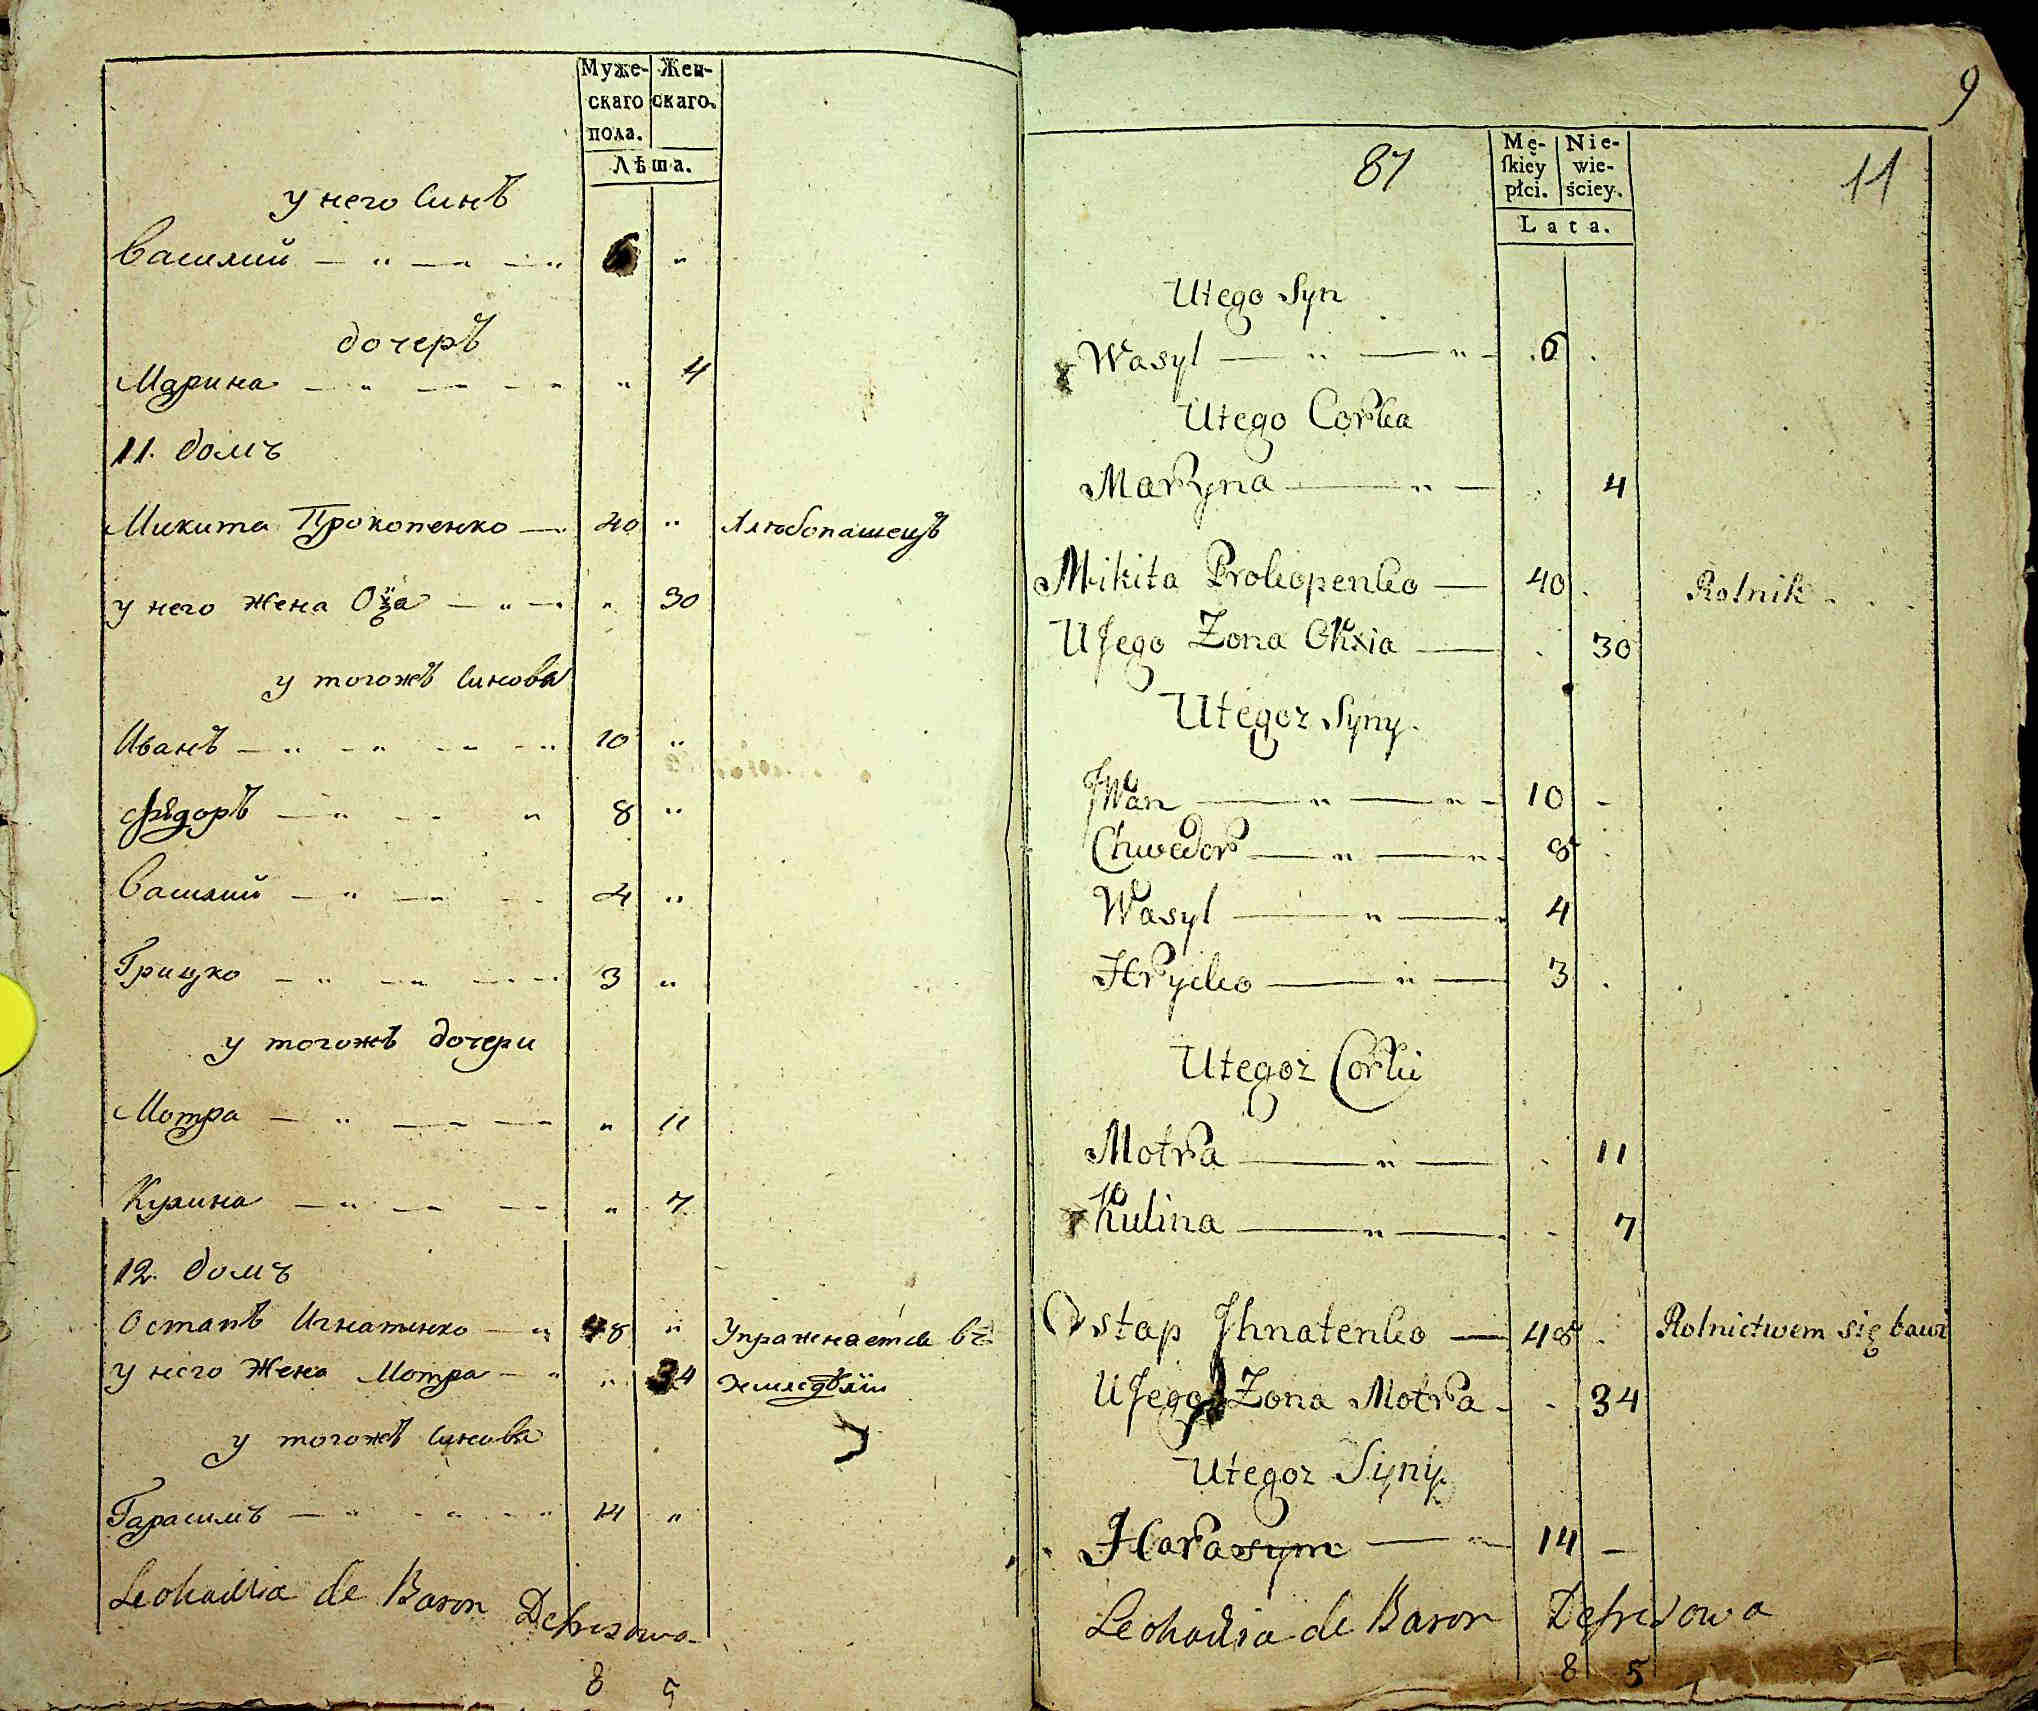 Муже- Жен-
скаго скаго.
пола.
Лѣта.
у него Синѣ
Василий — " — " — " 6 "
дочерѣ
Марина — " — " — " " 4
11. домъ
Микита Прокопенко — 40 " Хлѣбопашецѣ
у него жена — " — " 30
у тогожѣ Синова
Иванѣ — " — " — " 10 "
Фѣдорѣ — " — " 8 "
Василий — " — " 4 "
Грицко — " — " — " 3 "
у тогожѣ дочери
Мотра — " — " — " " 11
Кулина — " — " — " " 7
12. домъ
Остапѣ Игнатенко — " 48 " Упражняется въ
у него Жена Мотра — " " 34 земледѣлiи
у тогожѣ Синова
Гарасимъ — " — " — " 14 "
Leokadia de Baron Defresowa
8 5
9
87 Mę- Nie- 11
skiey wie-
płci. ściey.
Lata.
Utego Syn
Wasyl — " — " — 6 .
Utego Corka
Maryna — " — . 4
Mikita Prokopenko — 40 . Rolnik . . .
UJego Zona Chixia — . 30
Utegoz Syny.
Jwan — " — " — 10 -
Chwedor — " — " 8 .
Wasyl — " — 4
Hrycko — " — 3 .
Utegoz Corki
Motra — " — . 11
Kulina — " — . 7
Ostap Jhnatenko — 48 . Rolnictwem się bawi
UJego Zona Motra - . 34
Utegoz Syny.
Harasym — " — 14 —
Leokadia de Baron Defresowa
8 5